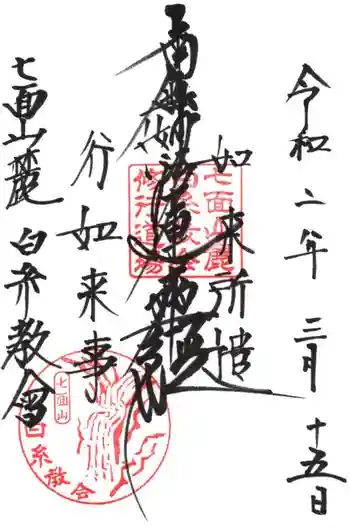 令和二年 三月 十五日
如来所遣
南無妙法蓮華経
行如来事
七面山麓 白糸教会
七面山麓
白糸教会
修行道場
七面山
白糸教会